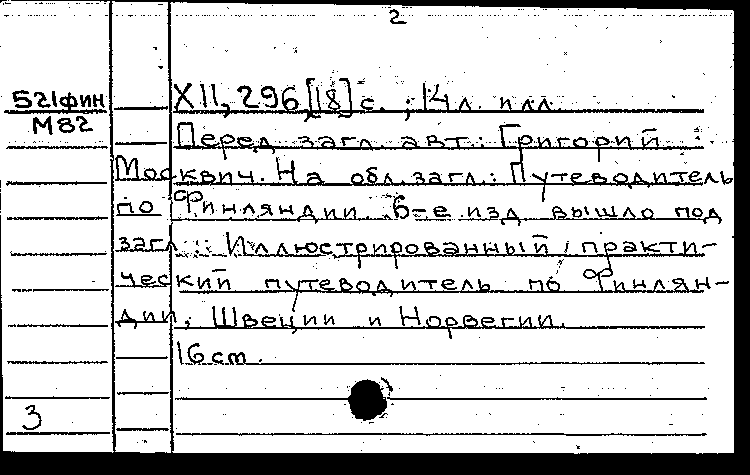 2
521фин XII, 296,[18] с. ; 14 л. илл.
М82
Перед загл. авт.: Григорий
Москвич. На обл. загл.: Путеводитель
по Финляндии. 6-е изд. вышло под
загл.: Иллюстрированный практи-
ческий путеводитель по Финлян-
дии, Швеции и Норвегии.
16 cm.
3